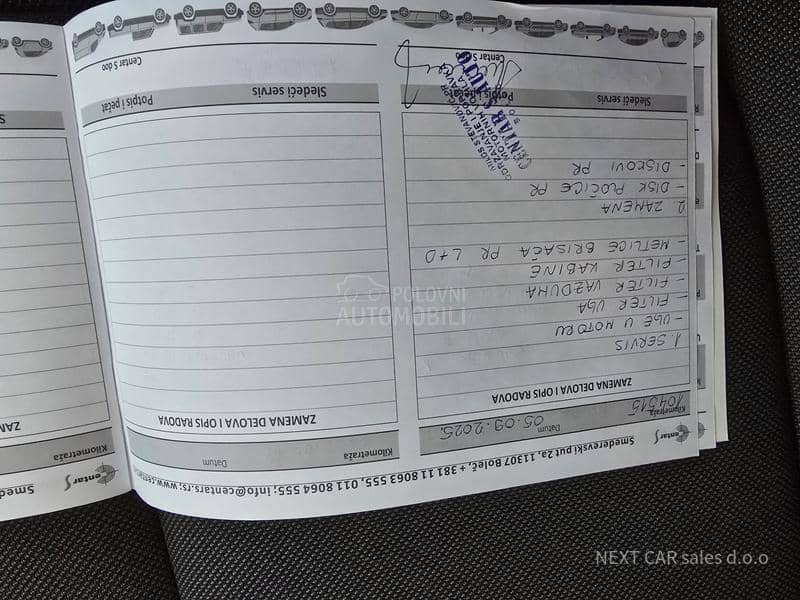 Centar S
Smederevski put 2a, 11307 Boleč, + 381 11 8063 555, 011 8064 555; info@centars.rs; www.centars
Kilometraža
104315
Datum
05.09.2025.
ZAMENA DELOVA I OPIS RADOVA
1. SERVIS
- ULJE U MOTORU
- FILTER ULJA
- FILTER VAZDUHA
- FILTER KABINE
- METLICE BRISAČA PR L+D
2. ZAMENA
- DISK PLOČICE PR
- DISKOVI PR
Sledeći servis
Potpis i pečat
ODRŽAVANJE I OPRAVKA
MOTORNIH VOZILA
CENTAR S AUTO
Centar S doo
Kilometraža
Datum
ZAMENA DELOVA I OPIS RADOVA
Sledeći servis
Potpis i pečat
Centar S doo
Centar S
Smed
Kilometraža
ZAM
S
POLOVNI
AUTOMOBILI
NEXT CAR sales d.o.o